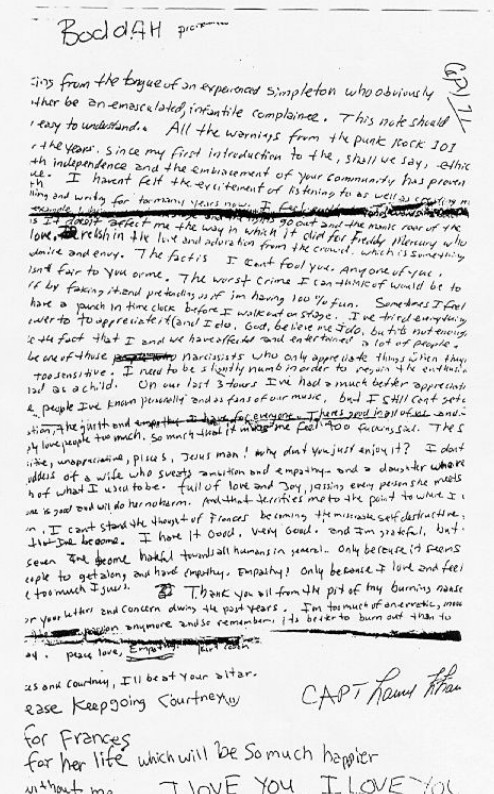 BoddAH
ing from the tongue of an experienced simpleton who obviously
ther be an emasculated, infantile complainee. This note should
easy to understand. All the warnings from the punk rock 101
the years. since my first introduction to the, shall we say, ethic
th independence and the embracement of your community has proven
ue. I havent felt the excitement of listening to as well as creating m
ning and writing for too many years now. I feel
go out and the manic roar of the
doesnt affect me the way in which it did for Freddy Mercury who
love, relish in the love and adoration from the crowd. which is something
dmire and envy. The fact is I cant fool you. Any one of you.
isnt fair to you or me. The worst Crime I can think of would be to
ff by faking it and pretending as if im having 100% fun. Sometimes I feel
have a punch in time clock before I walk out on stage. I've tried everything
ower to to appreciate it (and I do, God, believe me I do, but its not enough
the fact that I and we have affected and entertained a lot of people.
be one of those narcissists who only appreciate things when they
too sensitive. I need to be slightly numb in order to regain the enthusia
had as a child. On our last 3 tours I've had a much better appreciati
people I've known personally and as fans of our music, but I still cant get
ation, the guilt and empathy I have for everyone. Theres good in all of us and
ply love people too much. So much that it makes me feel too fucking sad. The s
itive, unappreciative, pisces, Jesus man! why dont you just enjoy it? I dont
oddess of a wife who sweats ambition and empathy. and a daughter who re
h of what I used to be. full of love and Joy, kissing every person she meets
one is good and will do her no harm. And that terrifies me to the point to where I
n. I cant stand the thought of Frances becoming the miserable self destructive,
that I've become. I have it Good, very Good. and I'm grateful, but
seven I've become hateful towards all humans in general. Only because it seems
eople to get along and have empathy. Empathy! Only because I love and feel
e too much I guess. Thank you all from the pit of my burning nause
or your letters and concern during the past years. I'm too much of an erratic, moo
passion anymore and so remember, its better to burn out than to
ay. peace love, Empathy. kurt cobain
es and Courtney, I'll be at your altar.
ease Keep going Courtney
CAPT
for Frances
for her life which will be so much happier
without me. I LOVE YOU I LOVE YOU